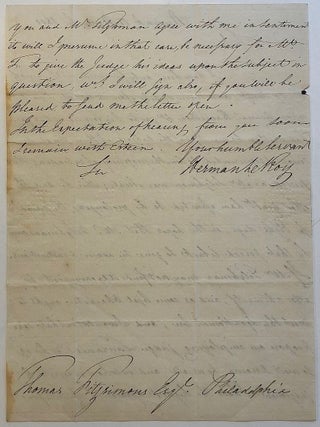 you and Mr Tilghman agree with me in sentiment
it will I presume in that case, be necessary for Mr
T. to give the Judge his ideas upon the subject in
question, wch I will sign also, if you will be
pleased to send me the letter open.
In the Expectation of hearing from you soon
I remain with Esteem Your humble Servant
Sir Herman Le Roy
Thomas Fitzsimons Esqr. Philadelphia